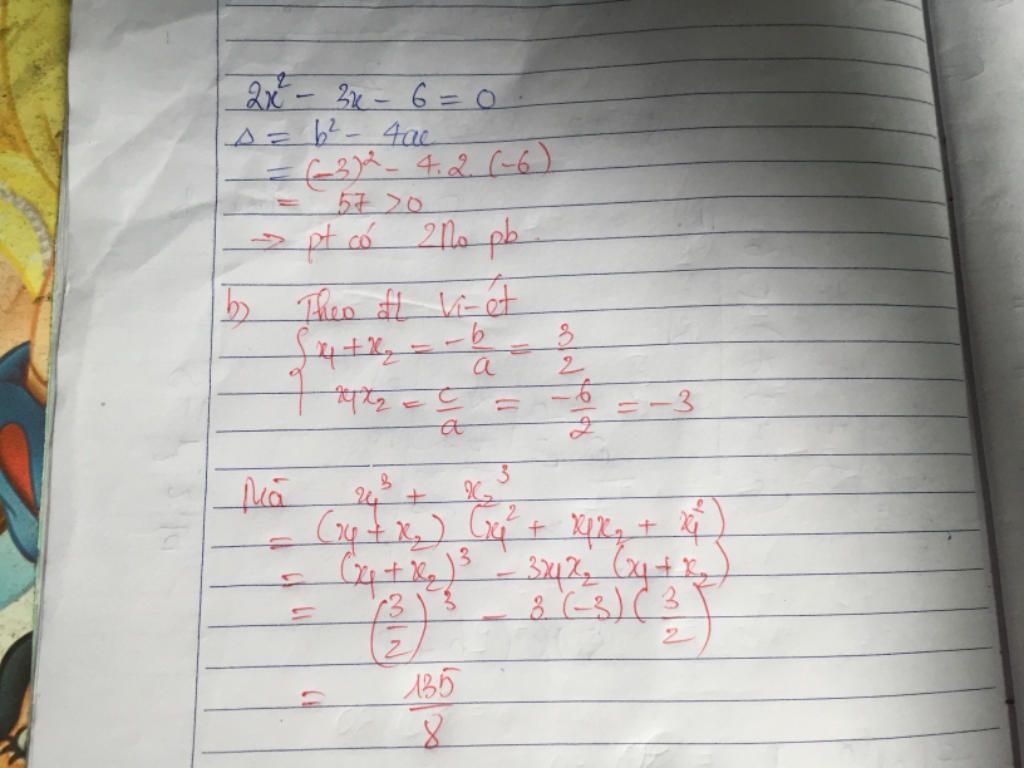 2x² - 3x - 6 = 0
Δ = b² - 4ac
= (-3)² - 4.2.(-6)
= 57 > 0
→ pt có 2No pb.
b) Theo đl Vi-ét
{ x₁ + x₂ = -b/a = 3/2
x₁x₂ = c/a = -6/2 = -3
Mà x₁³ + x₂³
= (x₁ + x₂) (x₁² + x₁x₂ + x₁²)
= (x₁ + x₂)³ - 3x₁x₂ (x₁ + x₂)
= (3/2)³ - 3.(-3)(3/2)
= 135/8